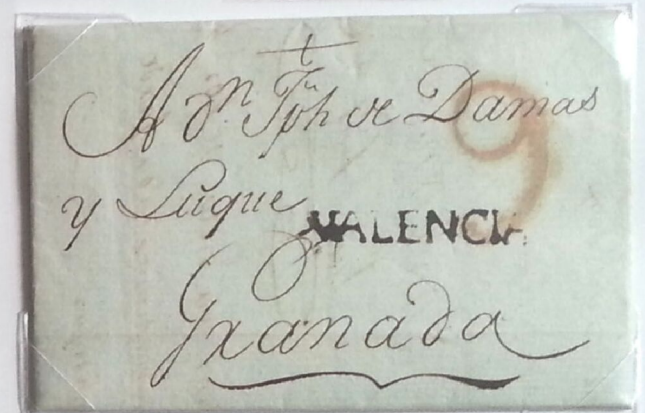 A dn. Jph de Damas
9
y Luque
VALENCIA
Granada